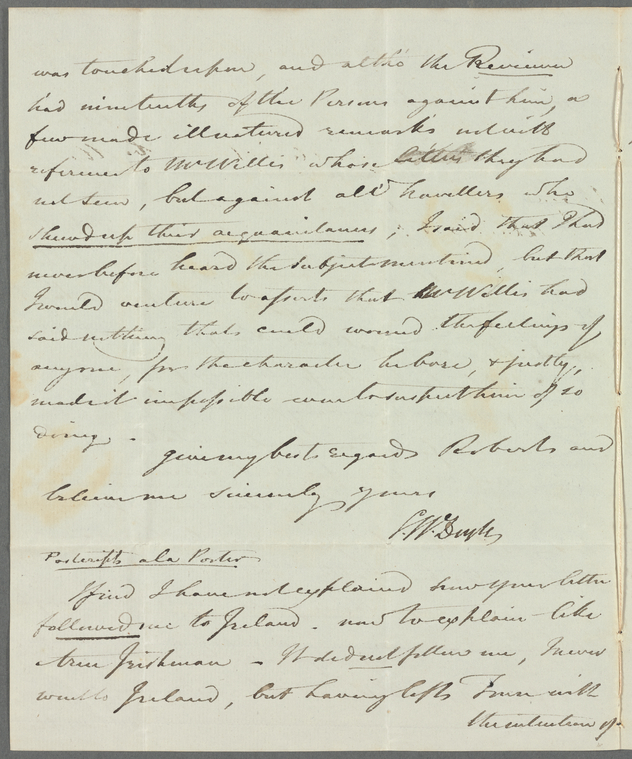 was touched upon, and altho' the Reviewer
had nine tenths of the Persons against him, a
few made illnatured remarks not with
reference to Mr Willis whose letters they had
not seen, but against all travellers who
shewed up their acquaintances; I said that I had
never before heard the subject mentioned, but that
I would venture to assert that Mr Willis had
said nothing that could wound the feelings of
anyone, for the character he bore, & justly,
made it impossible even to suspect him of so
doing. -
give my best regards Roberts and
believe me sincerely yours
Postcripts a la Porter
I find I have not explained how your letter
followed me to Ireland - now to explain like
a true Irishman - It did not follow me, I never
went to Ireland, but having left Town with
the intention of